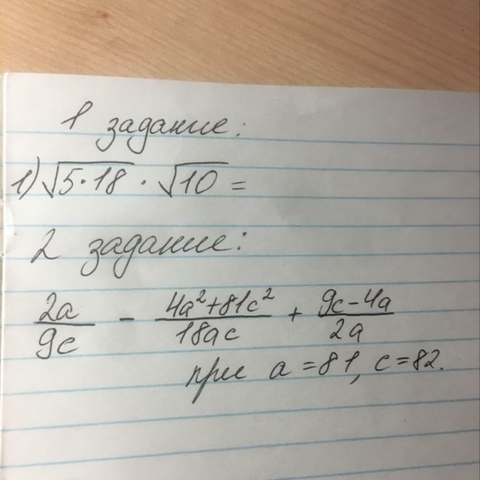 1 задание:
1) √5·18 · √10 =
2 задание:
2a/9c - 4a²+81c²/18ac + 9c-4a/2a
при a=81, c=82.